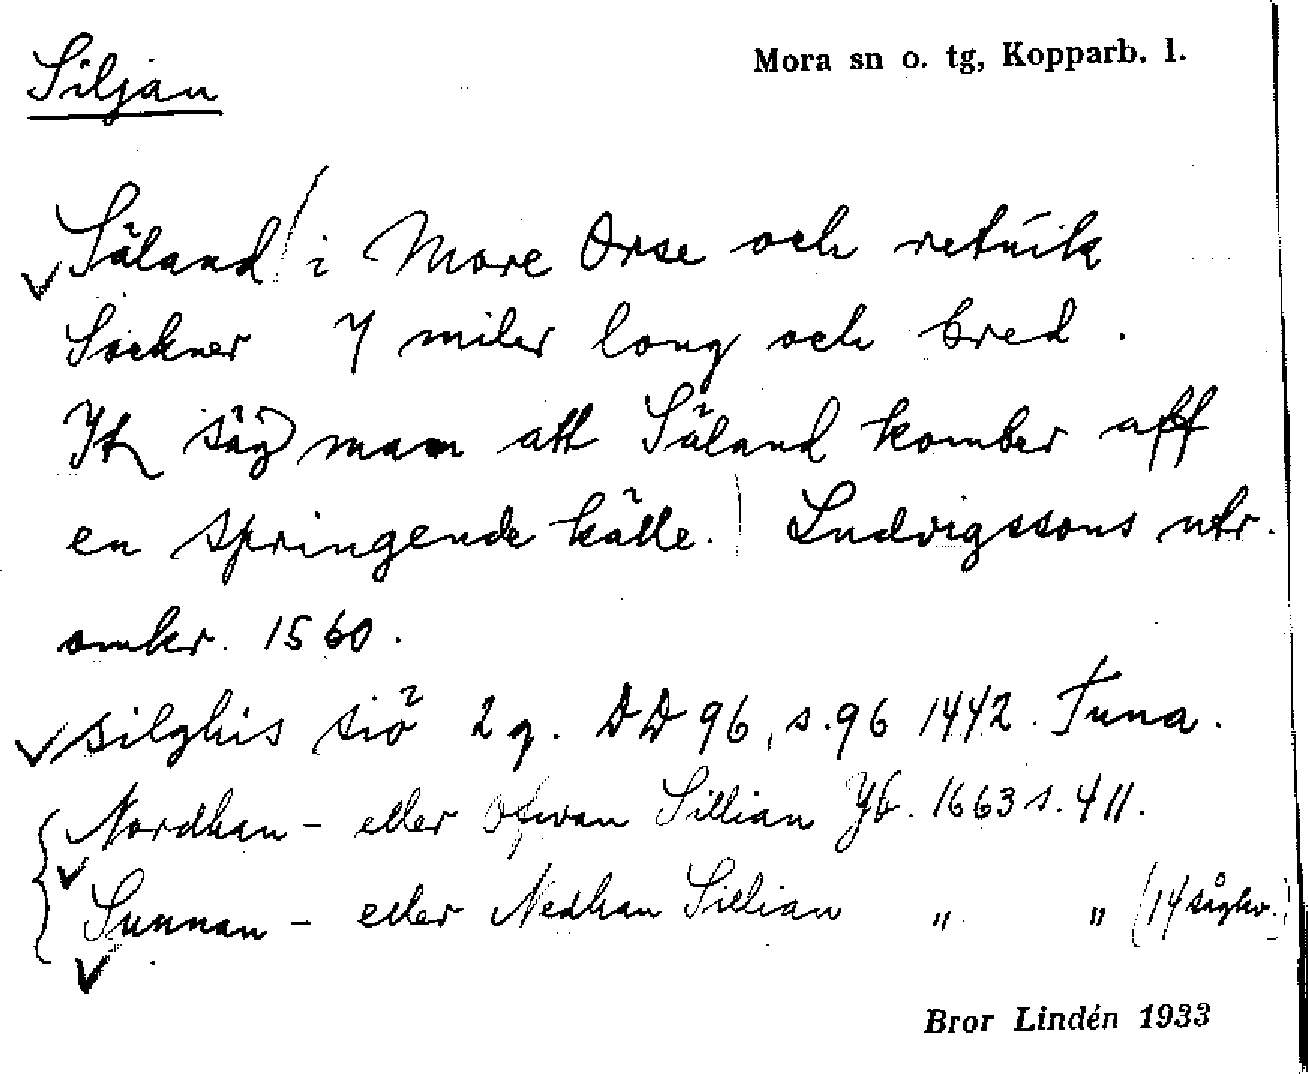 Siljan
Mora sn o. tg, Kopparb. l.
Säland / i More Orse och retuik
Sockner 7 miler long och bred.
It säg) man att Säland komber aff
en springende källe. | Ludvigssons utr.
omkr. 1560.
silghis siö 2 g. DD 96, s. 96 1442. Tuna.
Nordhan - eller Ofwan Sillian Jb. 1663 s. 411.
Sunnan - eller Nedhan Sillian " " (14 sågkv.)
Bror Lindén 1933